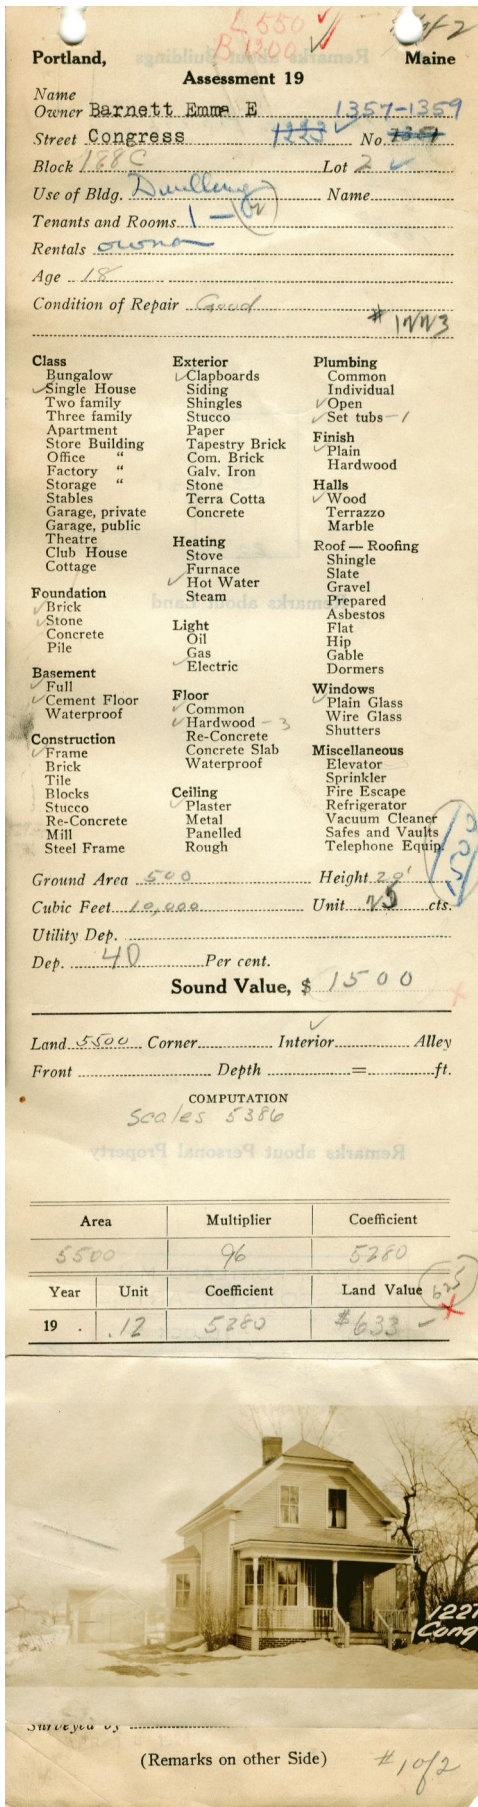 L 550 ✓
B 1200 ✓
of 2
Portland, Maine
Assessment 19
Name
Owner Barnett Emma E 1357-1359
Street Congress 1223 ✓ No.
Block 188C Lot 2 ✓
Use of Bldg. Dwelling Name
Tenants and Rooms 1 -
Rentals owner
Age 18
Condition of Repair Good
# 1223
Class
Bungalow
✓Single House
Two family
Three family
Apartment
Store Building
Office "
Factory "
Storage "
Stables
Garage, private
Garage, public
Theatre
Club House
Cottage
Foundation
✓Brick
✓Stone
Concrete
Pile
Basement
✓Full
✓Cement Floor
Waterproof
Construction
✓Frame
Brick
Tile
Blocks
Stucco
Re-Concrete
Mill
Steel Frame
Exterior
✓Clapboards
Siding
Shingles
Stucco
Paper
Tapestry Brick
Com. Brick
Galv. Iron
Stone
Terra Cotta
Concrete
Heating
Stove
Furnace
✓Hot Water
Steam
Light
Oil
Gas
✓Electric
Floor
✓Common
✓Hardwood - 3
Re-Concrete
Concrete Slab
Waterproof
Ceiling
✓Plaster
Metal
Panelled
Rough
Plumbing
Common
Individual
✓Open
✓Set tubs - 1
Finish
✓Plain
Hardwood
Halls
✓Wood
Terrazzo
Marble
Roof — Roofing
Shingle
Slate
Gravel
Prepared
Asbestos
Flat
Hip
Gable
Dormers
Windows
✓Plain Glass
Wire Glass
Shutters
Miscellaneous
Elevator
Sprinkler
Fire Escape
Refrigerator
Vacuum Cleaner
Safes and Vaults
Telephone Equip.
Ground Area 500 Height 20'
Cubic Feet 10,000 Unit 25 cts.
Utility Dep.
Dep. 40 Per cent.
Sound Value, $ 1500
Land 5500 Corner Interior ✓ Alley
Front Depth = ft.
COMPUTATION
Scales 5386
Area Multiplier Coefficient
5500 96 5280
Year Unit Coefficient Land Value 625
19 . .12 5280 $633 ✓
1227
Cong
Surveyed by
(Remarks on other Side) # 1 of 2